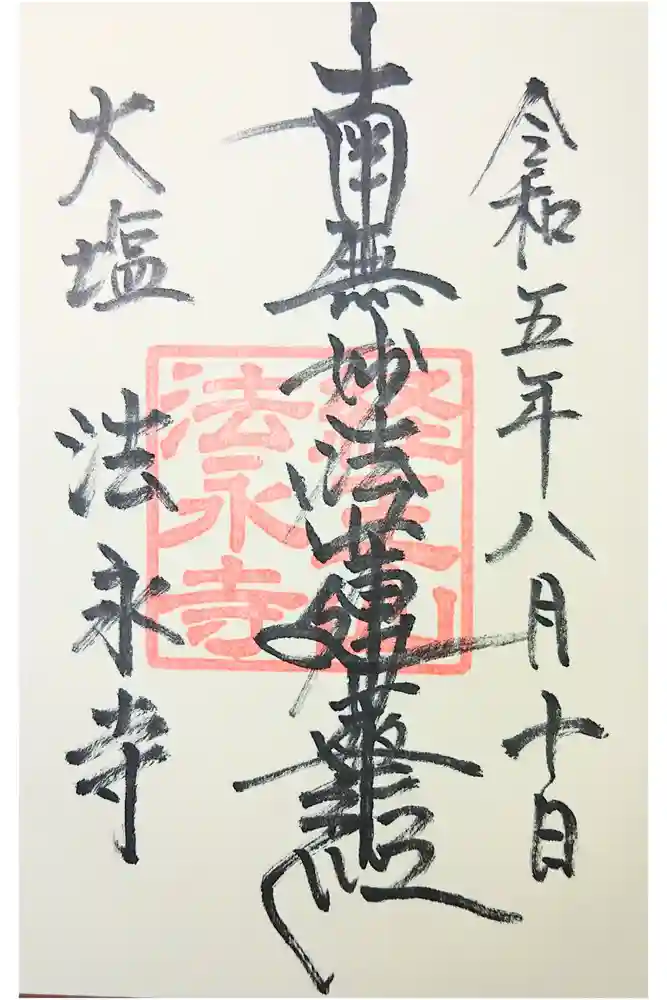 令和五年八月十日
南無妙法蓮華経
経王山
法永寺
大塩 法永寺